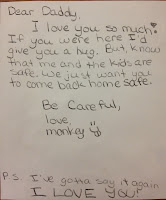 Dear Daddy,
I love you so much!
If you were here I'd
give you a hug. But, know
that me and the kids are
safe. We just want you
to come back home safe.
Be Careful,
love,
monkey
P.S. I've gotta say it again
I LOVE YOU!